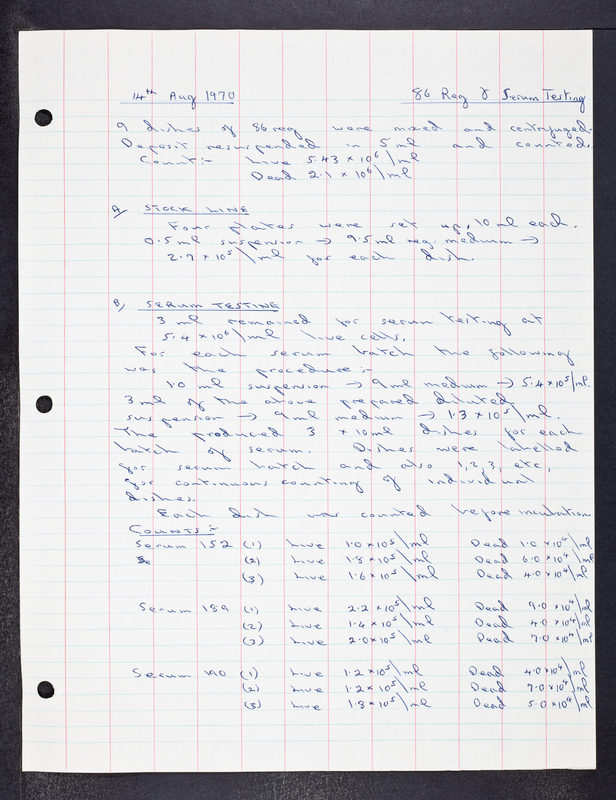 14th Aug 1970 86 Reg & Serum Testing
9 dishes of 86 reg were mixed and centrifuged.
Deposit resuspended in 5 ml and counted.
Count:- Live 5.43 × 10⁶/ml
Dead 2.1 × 10⁶/ml
A) STOCK LINE
Four plates were set up, 10 ml each.
0.5 ml suspension → 9.5 ml reg. medium →
2.7 × 10⁵/ml for each dish.
B) SERUM TESTING
3 ml remained for serum testing at
5.4 × 10⁶/ml live cells.
For each serum batch the following
was the procedure:-
1.0 ml suspension → 9 ml medium → 5.4 × 10⁵/ml.
3 ml of the above prepared diluted
suspension → 9 ml medium → 1.3 × 10⁵/ml.
The produced 3 × 10ml dishes for each
batch of serum. Dishes were labelled
for serum batch and also 1, 2, 3, etc,
for continuous counting of individual
dishes.
Each dish was counted before incubation
COUNTS:-
Serum 152 (1) Live 1.0 × 10⁵/ml Dead 1.0 × 10⁴/ml
(2) Live 1.8 × 10⁵/ml Dead 6.0 × 10⁴/ml
(3) Live 1.6 × 10⁵/ml Dead 4.0 × 10⁴/ml
Serum 189 (1) Live 2.2 × 10⁵/ml Dead 9.0 × 10⁴/ml
(2) Live 1.4 × 10⁵/ml Dead 4.0 × 10⁴/ml
(3) Live 2.0 × 10⁵/ml Dead 7.0 × 10⁴/ml
Serum 190 (1) Live 1.2 × 10⁵/ml Dead 4.0 × 10⁴/ml
(2) Live 1.2 × 10⁵/ml Dead 7.0 × 10⁴/ml
(3) Live 1.8 × 10⁵/ml Dead 5.0 × 10⁴/ml